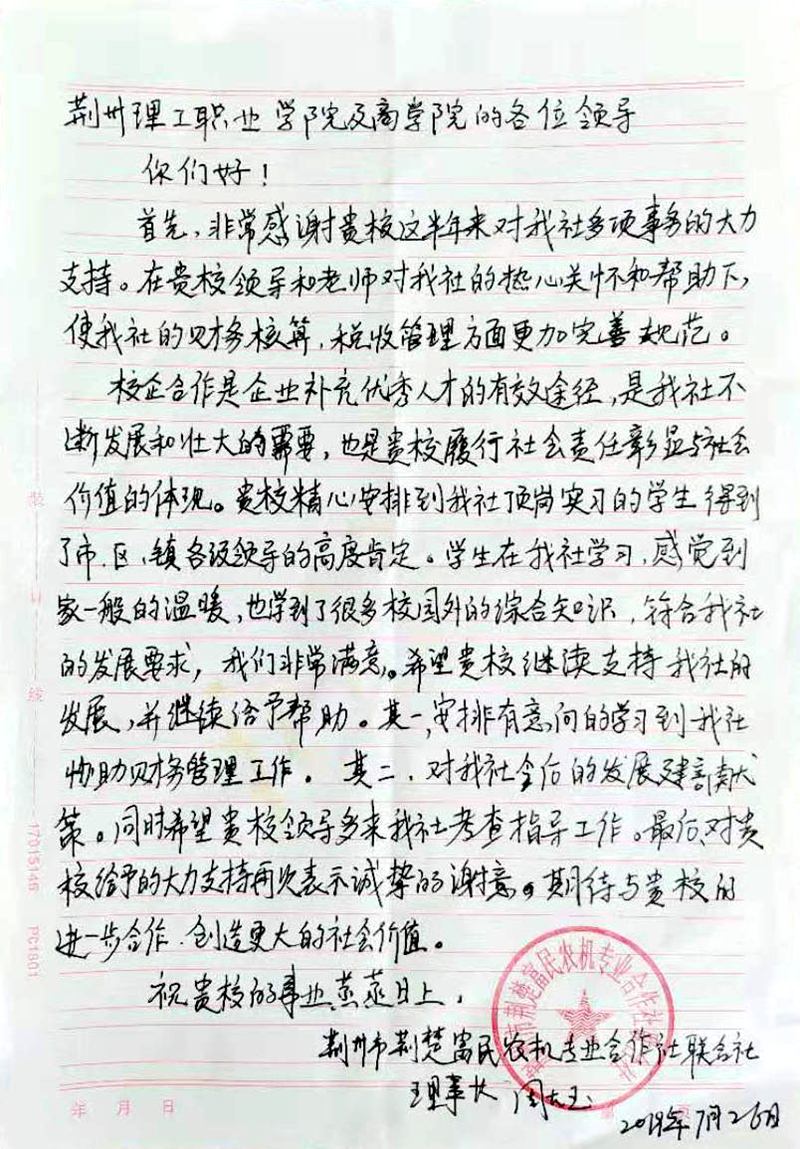 荆州理工职业学院及商学院的各位领导
你们好！
首先，非常感谢贵校这半年来对我社多项事务的大力
支持。在贵校领导和老师对我社的热心关怀和帮助下，
使我社的财务核算，税收管理方面更加完善规范。
校企合作是企业补充优秀人才的有效途径，是我社不
断发展和壮大的需要，也是贵校履行社会责任彰显与社会
价值的体现。贵校精心安排到我社顶岗实习的学生得到
了市、区、镇各级领导的高度肯定。学生在我社学习，感觉到
家一般的温暖，也学到了很多校园外的综合知识，符合我社
的发展要求，我们非常满意。希望贵校继续支持我社的
发展，并继续给予帮助。其一，安排有意向的学习到我社
协助财务管理工作。其二、对我社今后的发展建言献
策。同时希望贵校领导多来我社考查指导工作。最后，对贵
校给予的大力支持再次表示诚挚的谢意。期待与贵校的
进一步合作，创造更大的社会价值。
祝贵校的事业蒸蒸日上，
荆州市荆楚富民农机专业合作社联合社
理事长 周
2019年7月26日
年 月 日
装
线
17015146 PC1601
市荆楚富民农机专业合作社